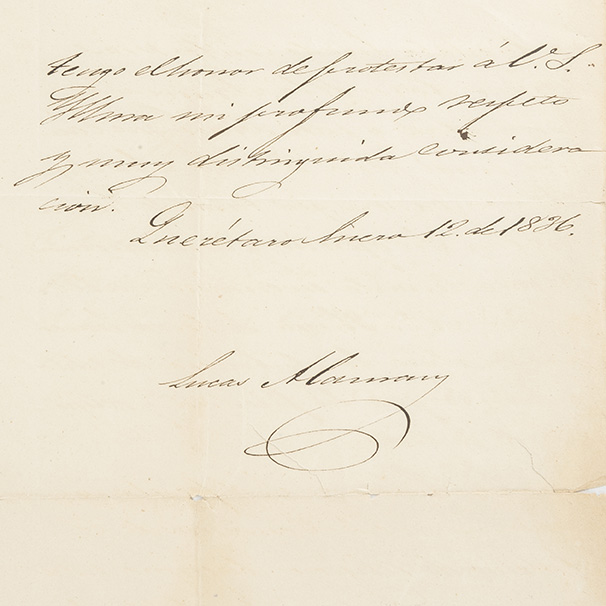 tengo el honor de protestar á V. S.
Yllma mi profundo respeto
y muy distinguida considera
cion.
Querétaro Enero 12. de 1836.
Lucas Alaman